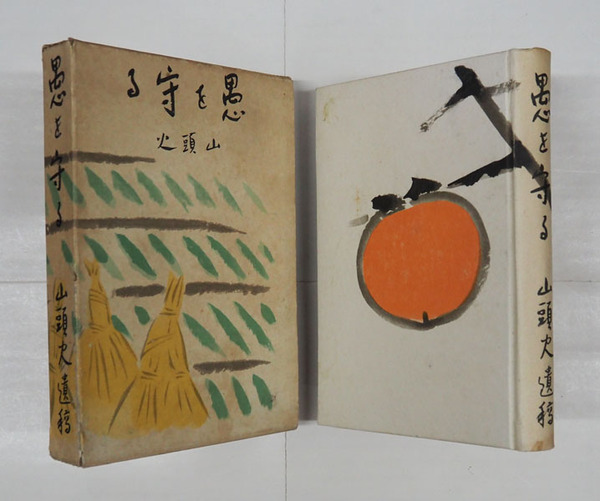 愚を守る
山頭火
愚を守る 山頭火遺稿
愚を守る 山頭火遺稿